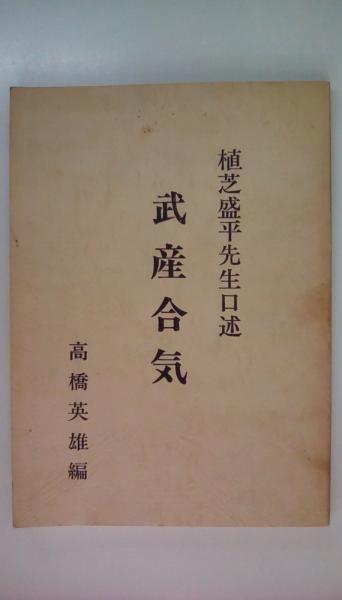 植芝盛平先生口述
武産合気
高橋英雄編